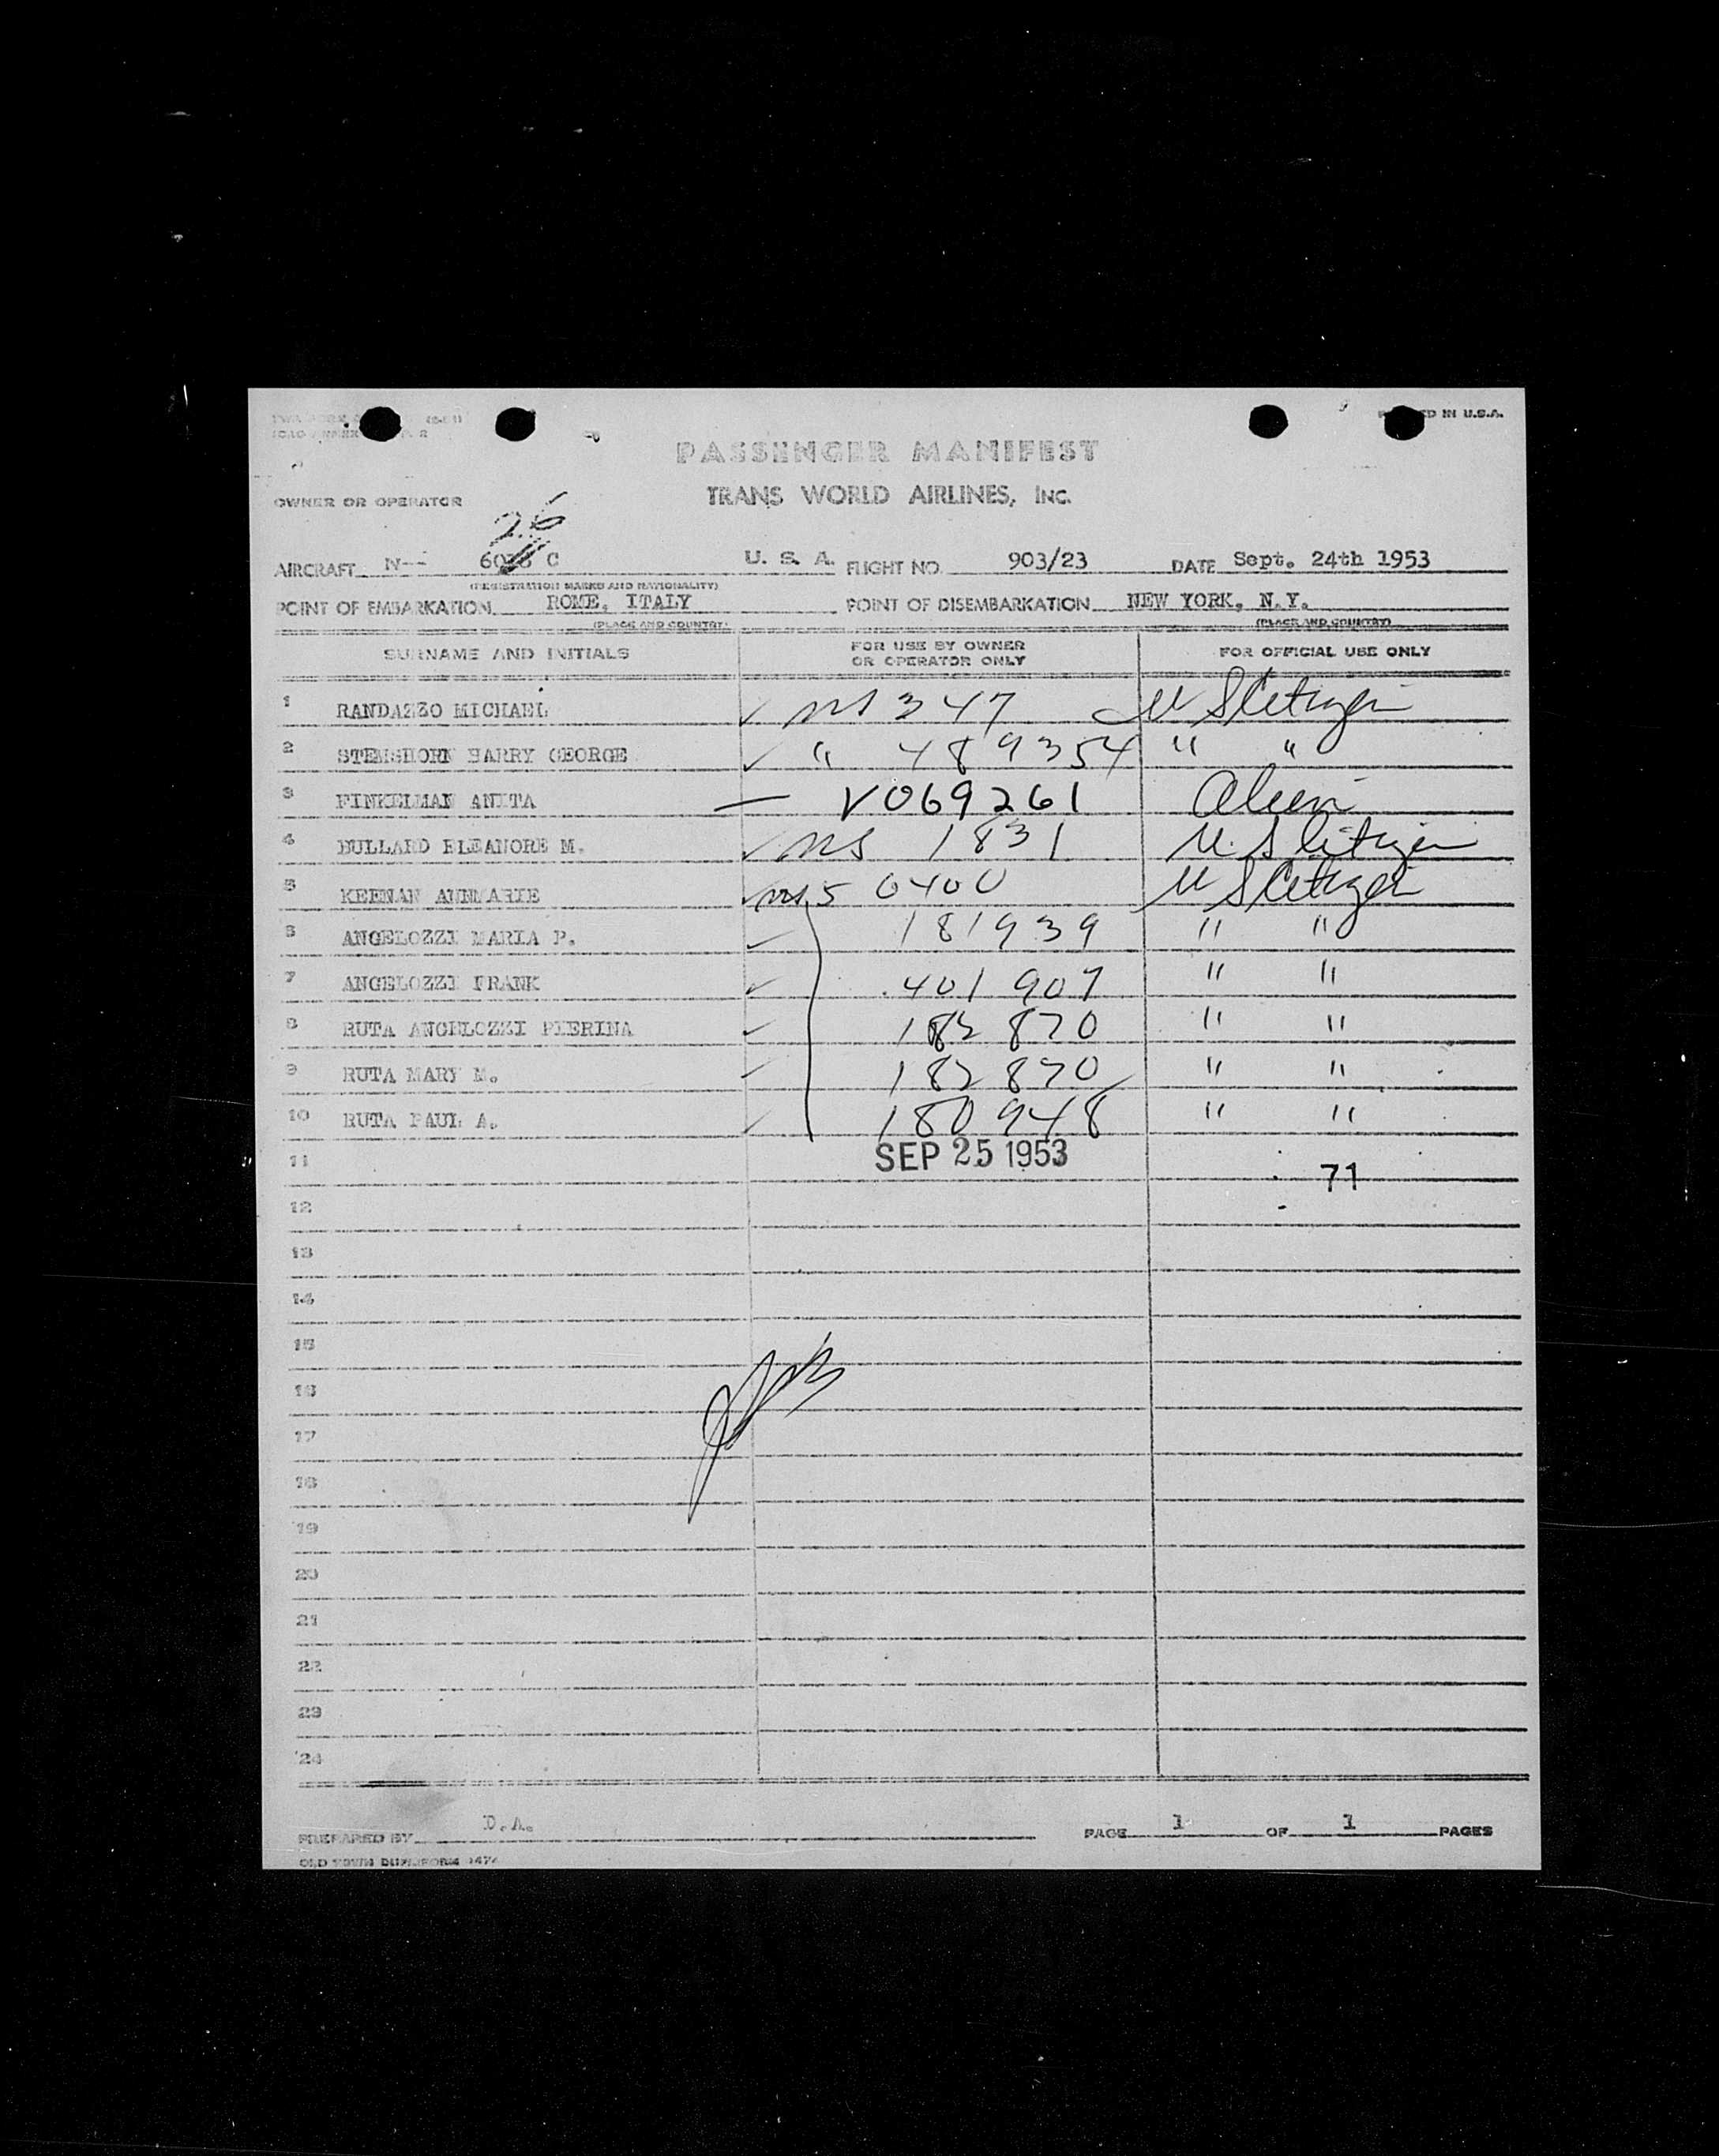 ED IN U.S.A.
PASSENGER MANIFEST
OWNER OR OPERATOR TRANS WORLD AIRLINES, INC.
26
AIRCRAFT N-- C U. S. A. FLIGHT NO. 903/23 DATE Sept. 24th 1953
(REGISTRATION MARKS AND NATIONALITY)
POINT OF EMBARKATION ROME, ITALY POINT OF DISEMBARKATION NEW YORK, N.Y.
(PLACE AND COUNTRY) (PLACE AND COUNTRY)
SURNAME AND INITIALS FOR USE BY OWNER OR OPERATOR ONLY FOR OFFICIAL USE ONLY
1 RANDAZZO MICHAEL ✓ 347 U S Citizen
2 HARRY GEORGE ✓ " 489354 " "
3 FINKELMAN ANITA — V069261 Alien
4 BULLARD ELEANORE M. ✓ 1831 U. S Citizen
5 KEENAN ANNMARIE ✓ 0400 U S Citizen
6 ANGELOZZI MARIA P. ✓ 181939 " "
7 ANGELOZZI FRANK ✓ 401 907 " "
8 RUTA ANGELOZZI PIERINA ✓ 182 870 " "
9 RUTA MARY M. ✓ 182 870 " "
10 RUTA PAUL A. ✓ 180 948 " "
11 SEP 25 1953 71
12
13
14
15
16
17
18
19
20
21
22
23
24
PREPARED BY D.A. PAGE 1 OF 1 PAGES
OLD TOWN